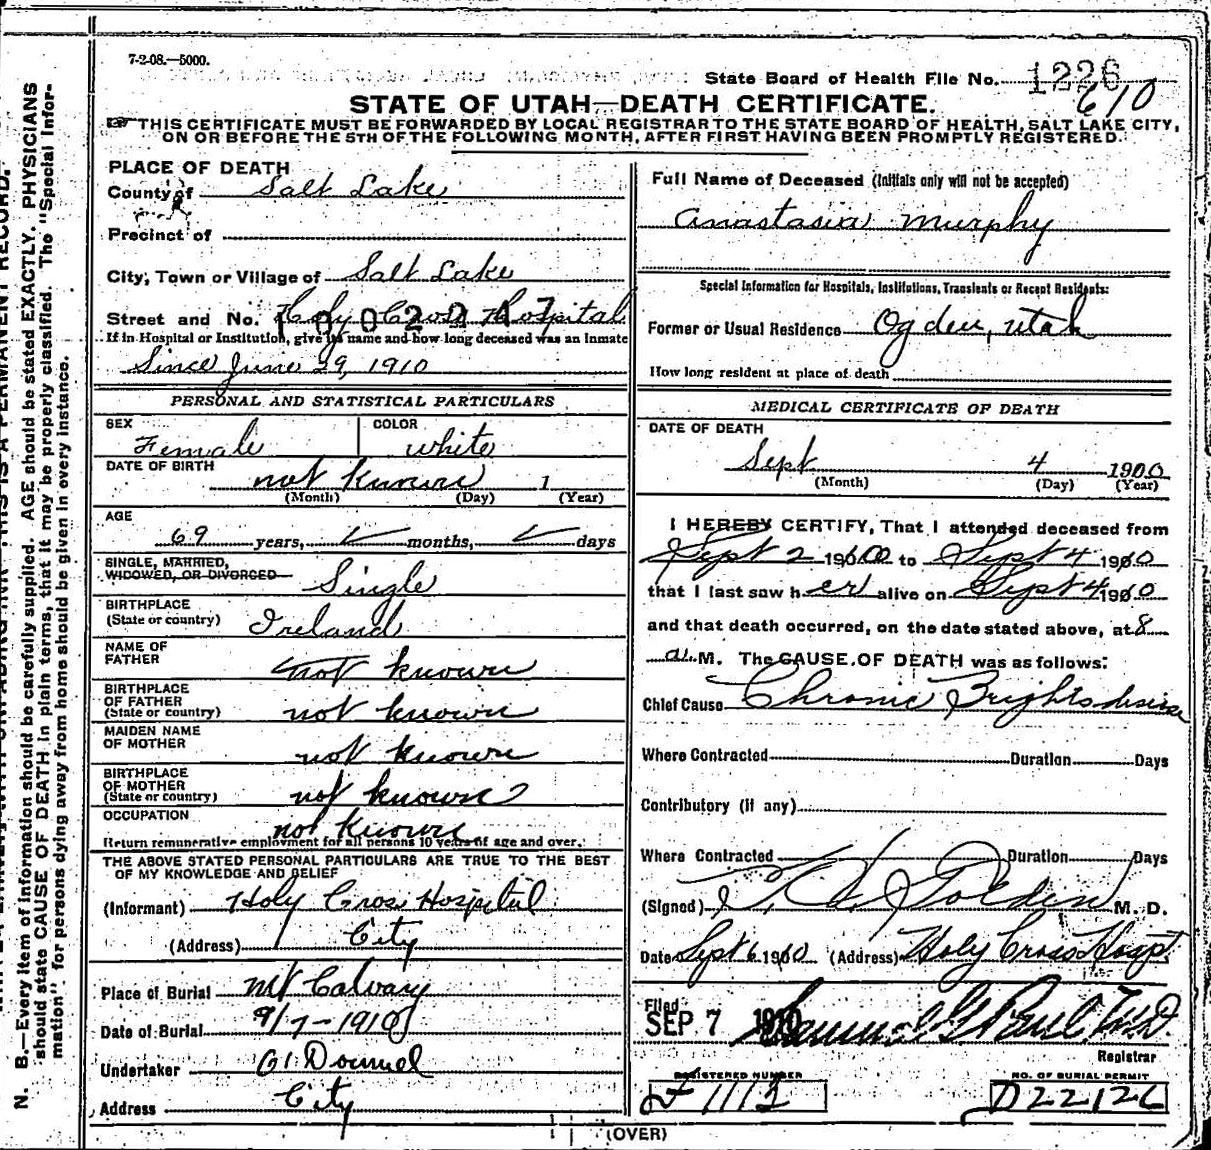 7-2-08.—5000.
State Board of Health File No. 1226
610
STATE OF UTAH—DEATH CERTIFICATE.
THIS CERTIFICATE MUST BE FORWARDED BY LOCAL REGISTRAR TO THE STATE BOARD OF HEALTH, SALT LAKE CITY,
ON OR BEFORE THE 5TH OF THE FOLLOWING MONTH, AFTER FIRST HAVING BEEN PROMPTLY REGISTERED.
PLACE OF DEATH
County of Salt Lake
Precinct of
City, Town or Village of Salt Lake
Street and No. Holy Cross Hospital
If in Hospital or Institution, give its name and how long deceased was an inmate
Since June 29, 1910
PERSONAL AND STATISTICAL PARTICULARS
SEX Female COLOR White
DATE OF BIRTH not known 1
(Month) (Day) (Year)
AGE
69 years, months, days
SINGLE, MARRIED,
WIDOWED, OR DIVORCED Single
BIRTHPLACE
(State or country) Ireland
NAME OF
FATHER not known
BIRTHPLACE
OF FATHER
(State or country) not known
MAIDEN NAME
OF MOTHER not known
BIRTHPLACE
OF MOTHER
(State or country) not known
OCCUPATION not known
Return remunerative employment for all persons 10 years of age and over.
THE ABOVE STATED PERSONAL PARTICULARS ARE TRUE TO THE BEST
OF MY KNOWLEDGE AND BELIEF
(Informant) Holy Cross Hospital
(Address) City
Place of Burial Mt Calvary
Date of Burial 9/7-1910
Undertaker O'Donnel
Address City
Full Name of Deceased (Initials only will not be accepted)
Anastasia Murphy
Special Information for Hospitals, Institutions, Transients or Recent Residents:
Former or Usual Residence Ogden, Utah
How long resident at place of death
MEDICAL CERTIFICATE OF DEATH
DATE OF DEATH
Sept 4 1910
(Month) (Day) (Year)
I HEREBY CERTIFY, That I attended deceased from
Sept 2 1910 to Sept 4 1910
that I last saw her alive on Sept 4 1910
and that death occurred, on the date stated above, at 8
a. M. The CAUSE OF DEATH was as follows:
Chief Cause Chronic Brights disease
Where Contracted Duration Days
Contributory (if any)
Where Contracted Duration Days
(Signed) Golden M. D.
Date Sept 6 1910 (Address) Holy Cross Hospt
Filed
SEP 7 1910 Samuel G Paul M.D.
Registrar
REGISTERED NUMBER
1113
NO. OF BURIAL PERMIT
D22126
(OVER)
N. B.—Every item of information should be carefully supplied. AGE should be stated EXACTLY. PHYSICIANS
should state CAUSE OF DEATH in plain terms, that it may be properly classified. The "Special Infor-
mation" for persons dying away from home should be given in every instance.